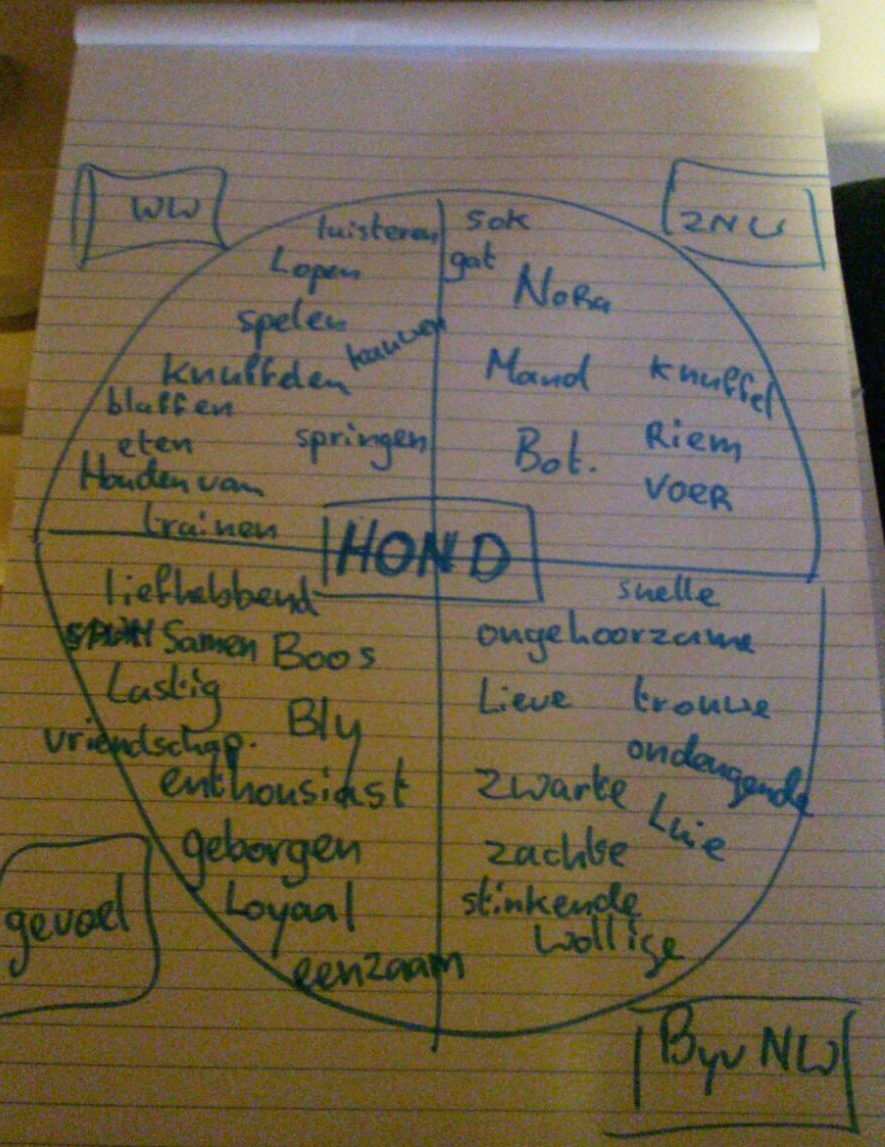 WW
luisteren
Lopen
spelen
kauwen
knuffelen
blaffen
eten
springen
Houden van
trainen
ZNW
sok
gat
Nora
Mand
knuffel
Bot.
Riem
VOER
HOND
liefhebbend
Samen
Boos
Lastig
Bly
vriendschap.
enthousiast
geborgen
Loyaal
eenzaam
gevoel
snelle
ongehoorzame
Lieve
trouwe
ondeugende
zwarte
Luie
zachte
stinkende
wollige
Byv NW